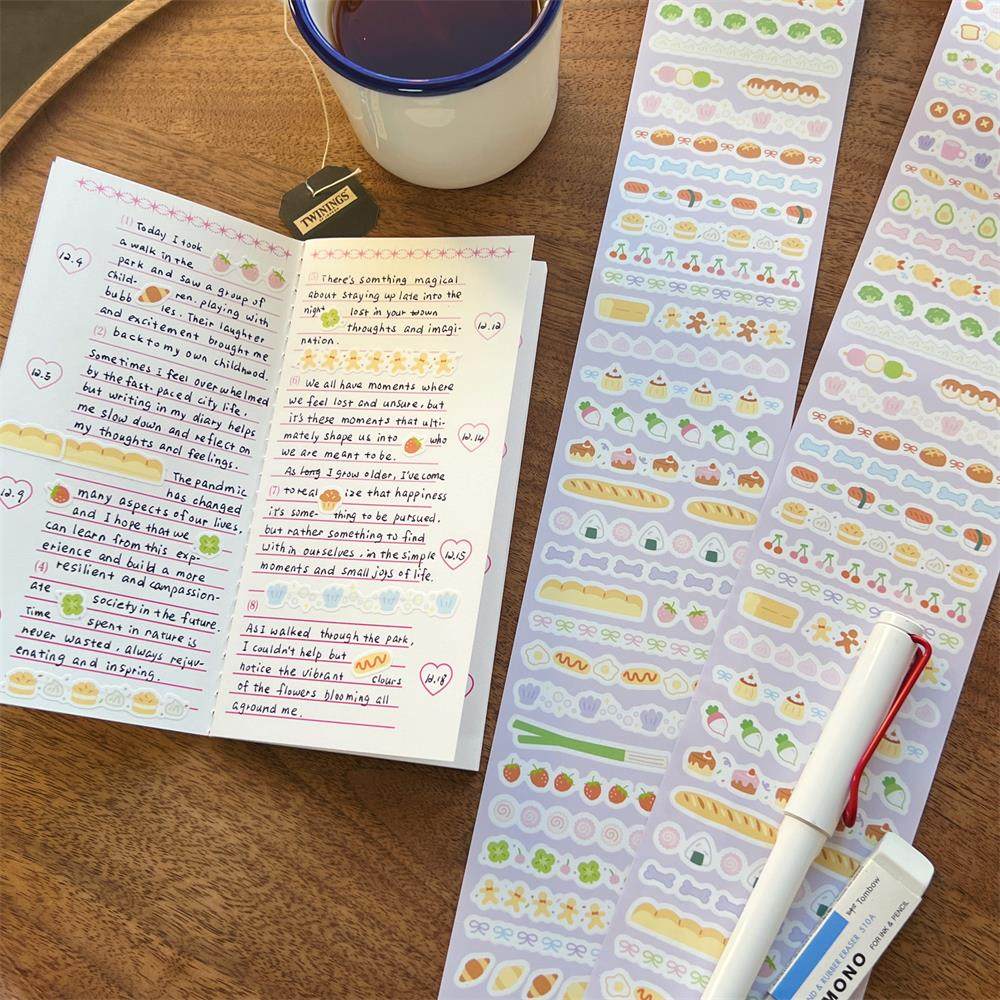 TWININGS
(1) Today I took
a walk in the
park and saw a group of
child- ren. playing with
bubb les. Their laughter
and excitement brought me
(2) back to my own childhood.
Sometimes I feel overwhelmed
by the fast-paced city life.
but writing in my diary helps
me slow down and reflect on
my thoughts and feelings.
The pandmic
has changed
many aspects of our lives.
and I hope that we
can learn from this exp-
erience and build a more
(4) resilient and compassion-
ate society in the future.
Time spent in nature is
never wasted, always rejuv-
enating and inspring.
12.4
12.5
12.9
There's somthing magical
about staying up late into the
night lost in your town
thoughts and imagi-
nation.
(6) We all have moments where
we feel lost and unsure, but
it's these moments that ulti-
mately shape us into who
we are meant to be.
As long I grow older, I've come
(7) to real ize that happiness
it's some- thing to be pursued.
but rather something to find
within ourselves, in the simple
moments and small joys of life.
(8)
As I walked through the park,
I couldn't help but
notice the vibrant clours
of the flowers blooming all
aground me.
12.12
12.14
12.15
12.18
Tombow
SAND & RUBBER ERASER 510A
FOR INK & PENCIL
MONO